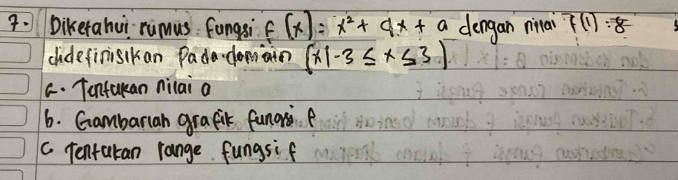 7. Diketahui rumus fungsi f(x) = x² + 4x + a dengan nilai f(1) = 8
didefinisikan Pada domain {x|-3 ≤ x ≤ 3}
a. Tentukan nilai a
b. Gambarlah grafik fungsi f
c Tentukan range fungsi f